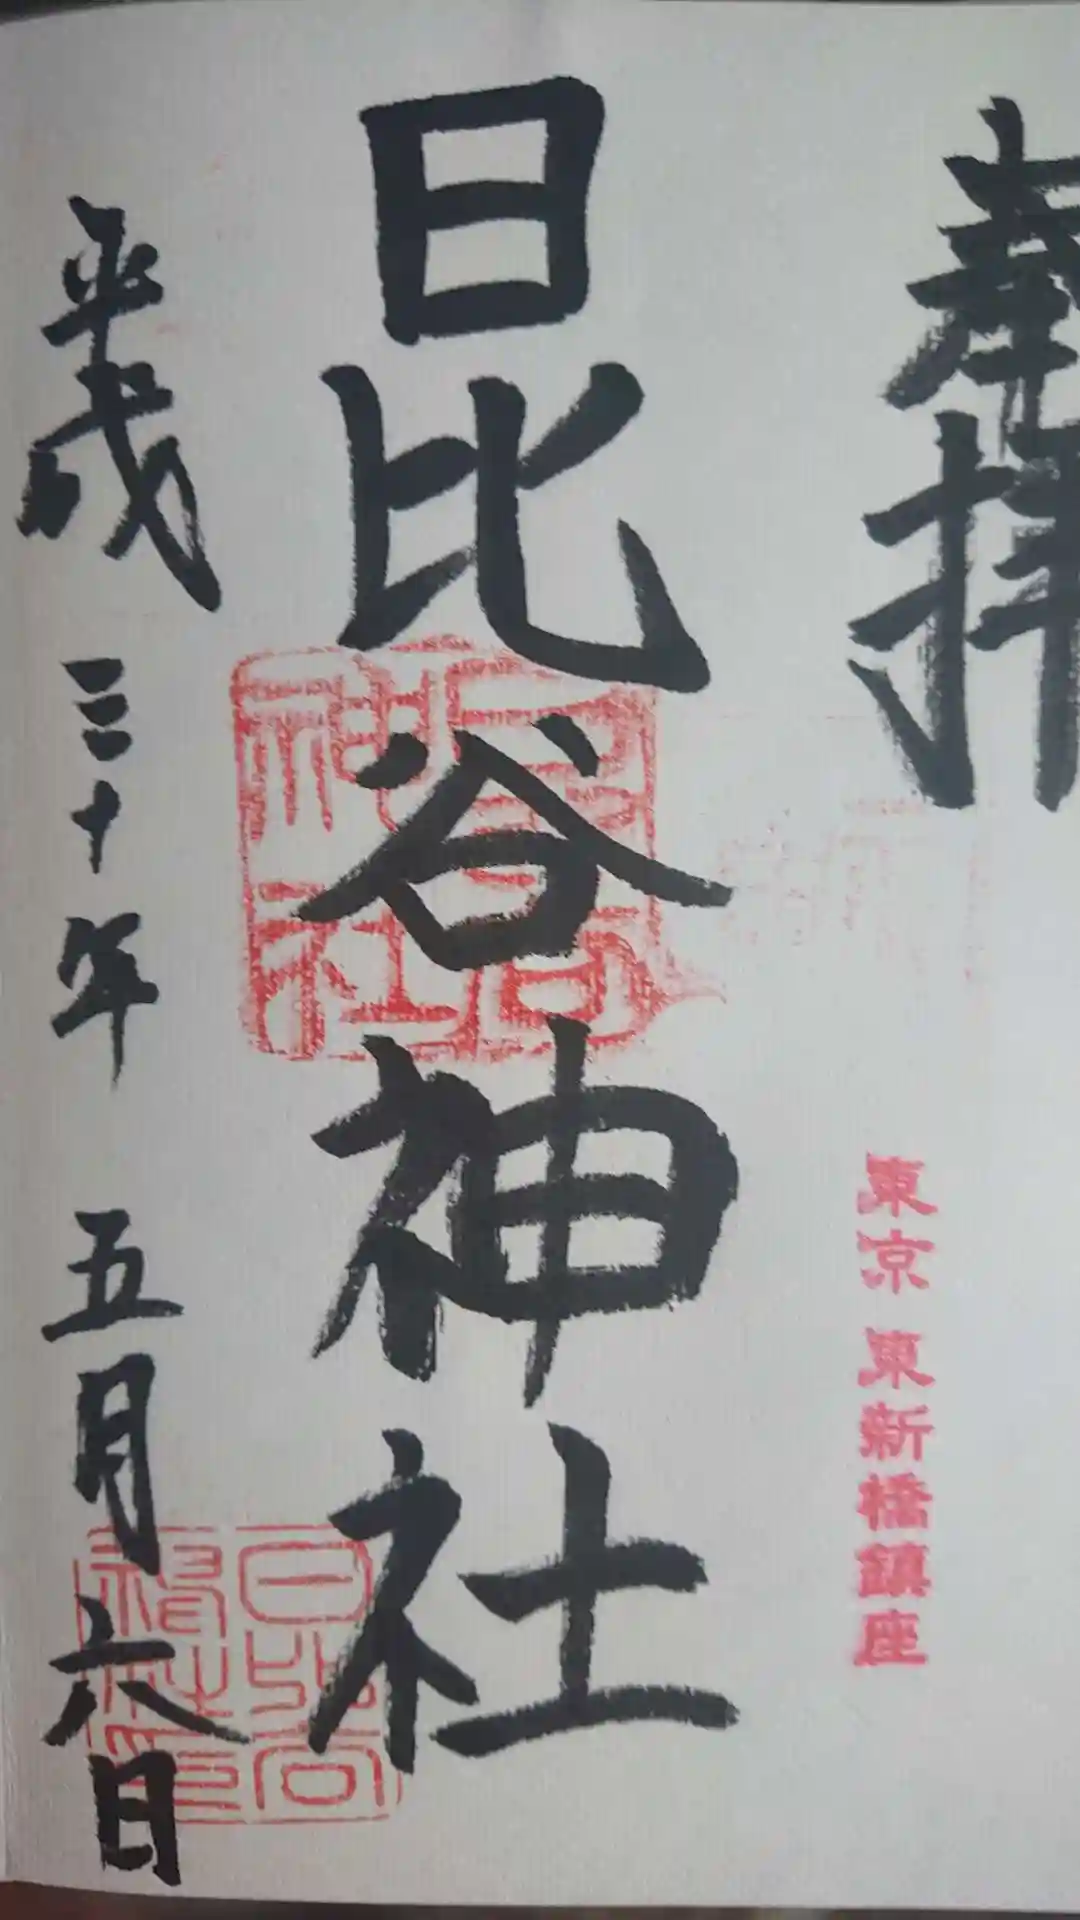 奉拝
東京 東新橋鎮座
日比谷神社
平成三十年 五月六日